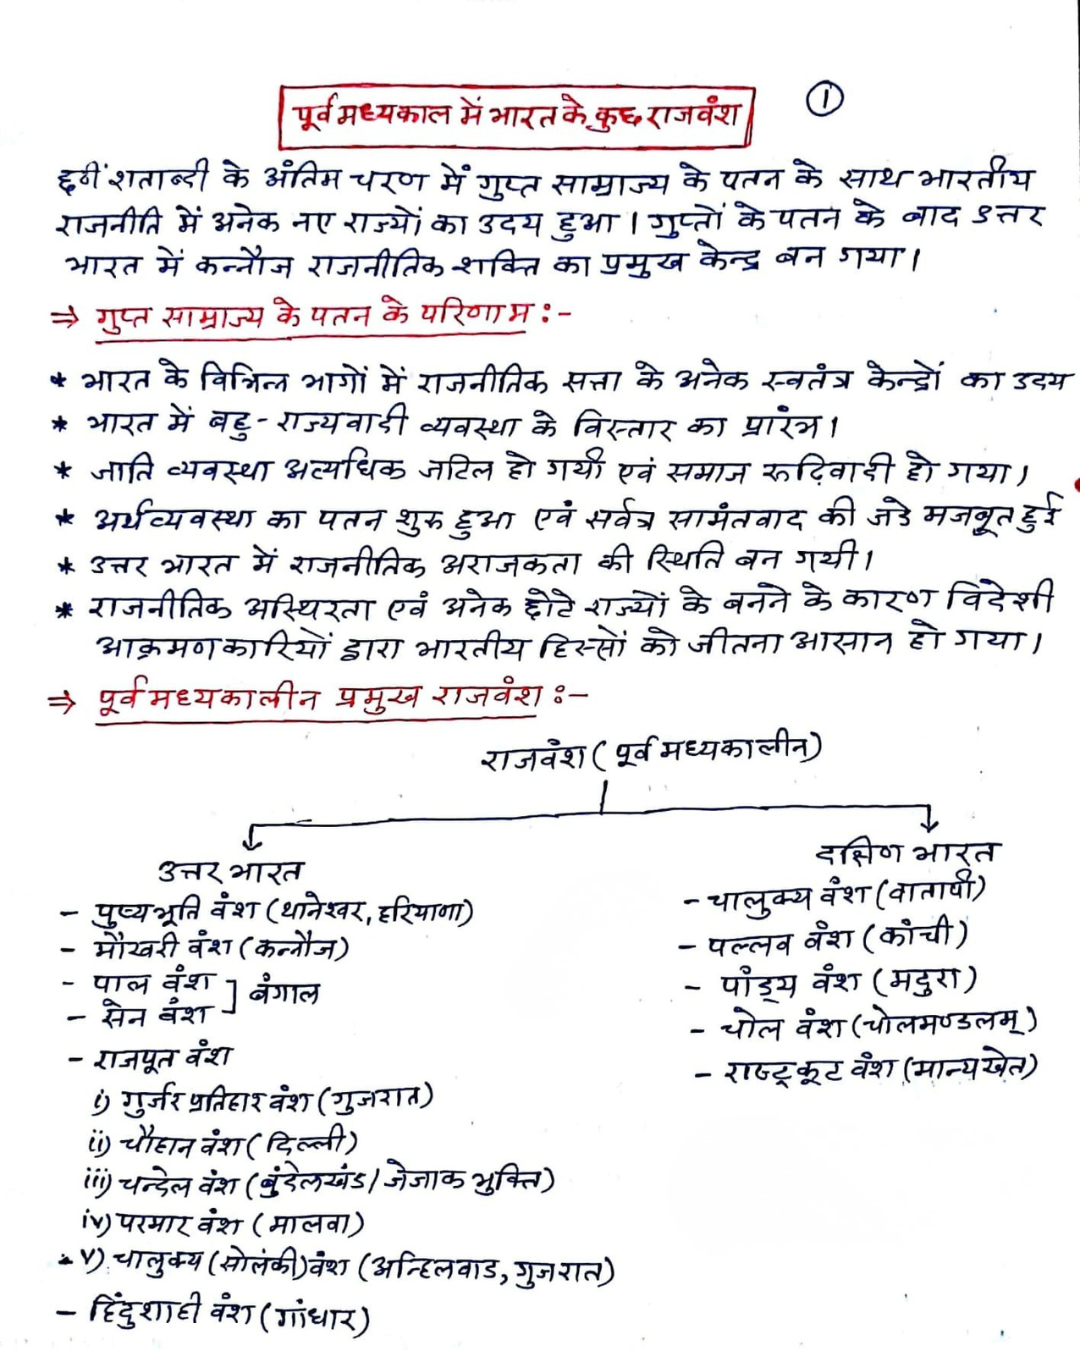 पूर्व मध्यकाल में भारत के कुछ राजवंश
1
छठीं शताब्दी के अंतिम चरण में गुप्त साम्राज्य के पतन के साथ भारतीय
राजनीति में अनेक नए राज्यों का उदय हुआ। गुप्तों के पतन के बाद उत्तर
भारत में कन्नौज राजनीतिक शक्ति का प्रमुख केन्द्र बन गया।
⇒ गुप्त साम्राज्य के पतन के परिणाम :-
* भारत के विभिन्न भागों में राजनीतिक सत्ता के अनेक स्वतंत्र केन्द्रों का उदय
* भारत में बहु-राज्यवादी व्यवस्था के विस्तार का प्रारंभ।
* जाति व्यवस्था अत्यधिक जटिल हो गयी एवं समाज रूढ़िवादी हो गया।
* अर्थव्यवस्था का पतन शुरु हुआ एवं सर्वत्र सामंतवाद की जडे मजबूत हुई
* उत्तर भारत में राजनीतिक अराजकता की स्थिति बन गयी।
* राजनीतिक अस्थिरता एवं अनेक छोटे राज्यों के बनने के कारण विदेशी
आक्रमणकारियों द्वारा भारतीय हिस्सों को जीतना आसान हो गया।
⇒ पूर्व मध्यकालीन प्रमुख राजवंश :-
राजवंश (पूर्व मध्यकालीन)
उत्तर भारत
- पुष्यभूति वंश (थानेश्वर, हरियाणा)
- मौखरी वंश (कन्नौज)
- पाल वंश
- सेन वंश ] बंगाल
- राजपूत वंश
i) गुर्जर प्रतिहार वंश (गुजरात)
ii) चौहान वंश (दिल्ली)
iii) चन्देल वंश (बुंदेलखंड/जेजाक भुक्ति)
iv) परमार वंश (मालवा)
v) चालुक्य (सोलंकी) वंश (अन्हिलवाड, गुजरात)
- हिंदुशाही वंश (गांधार)
दक्षिण भारत
- चालुक्य वंश (वातापी)
- पल्लव वंश (कांची)
- पांड्य वंश (मदुरा)
- चोल वंश (चोलमण्डलम्)
- राष्ट्रकूट वंश (मान्यखेत)